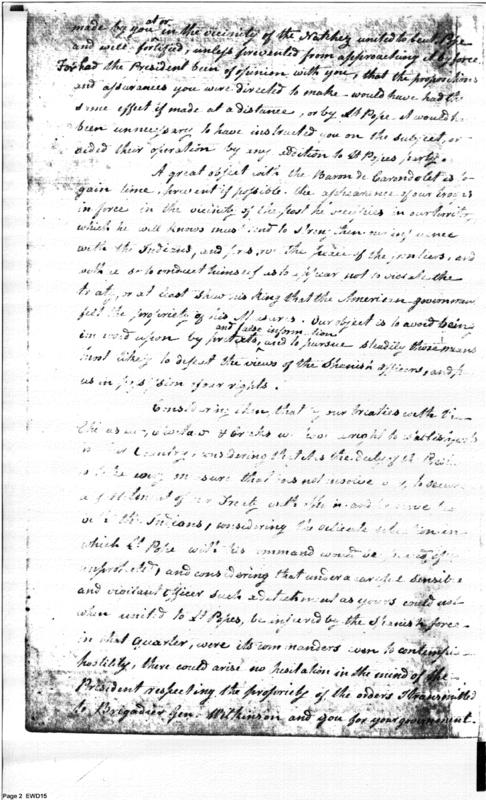 made by you at or in the vicinity of the Natchez united to Lieut Pope
and well fortified, unless prevented from approaching it by force
For had the President been of opinion with you, that the propositions
and assurances you were directed to make would have had the
same effect if made at a distance, or by Lt Pope, it would have
been unnecessary to have instructed you on the subject, or
aided their operation by any addition to Lt Popes party.
A great object with the Baron de Carondelet is to
gain time, prevent if possible the appearance of our troops
in force in the vicinity of the post he occupies in our territory
which he well knows must tend to strengthen our influence
with the Indians, and preserve the peace of the frontiers, and
with a so to conduct himself as to appear not to violate the
treaty, or at least shew his king that the American government
felt the propriety of his measures. Our object is to avoid being
imposed upon by pretexts, and false information and to pursue steadily those means
most likely to defeat the views of the Spanish officers, and put
us in possession of our rights.
Considering then, that by our treaties with the
Creeks we have a right to establish posts
in their Country, considering that it is the duty of the President
to take every measure that does not involve
fulfilment of our Treaty with Spain and
with the Indians, considering the delicate situation in
which Lt Pope with his command would be
unprotected, and considering that under a sensible
and vigilant officer such a detachment as yours could not
when united to Lt Popes, be injured by the Spanish force
in that quarter, were its commanders even to contemplate
hostility, there could arise no hesitation in the mind of the
President respecting the propriety of the orders I transmitted
to Brigadier Gen. Wilkinson and you for your government
Page 2 EWD15